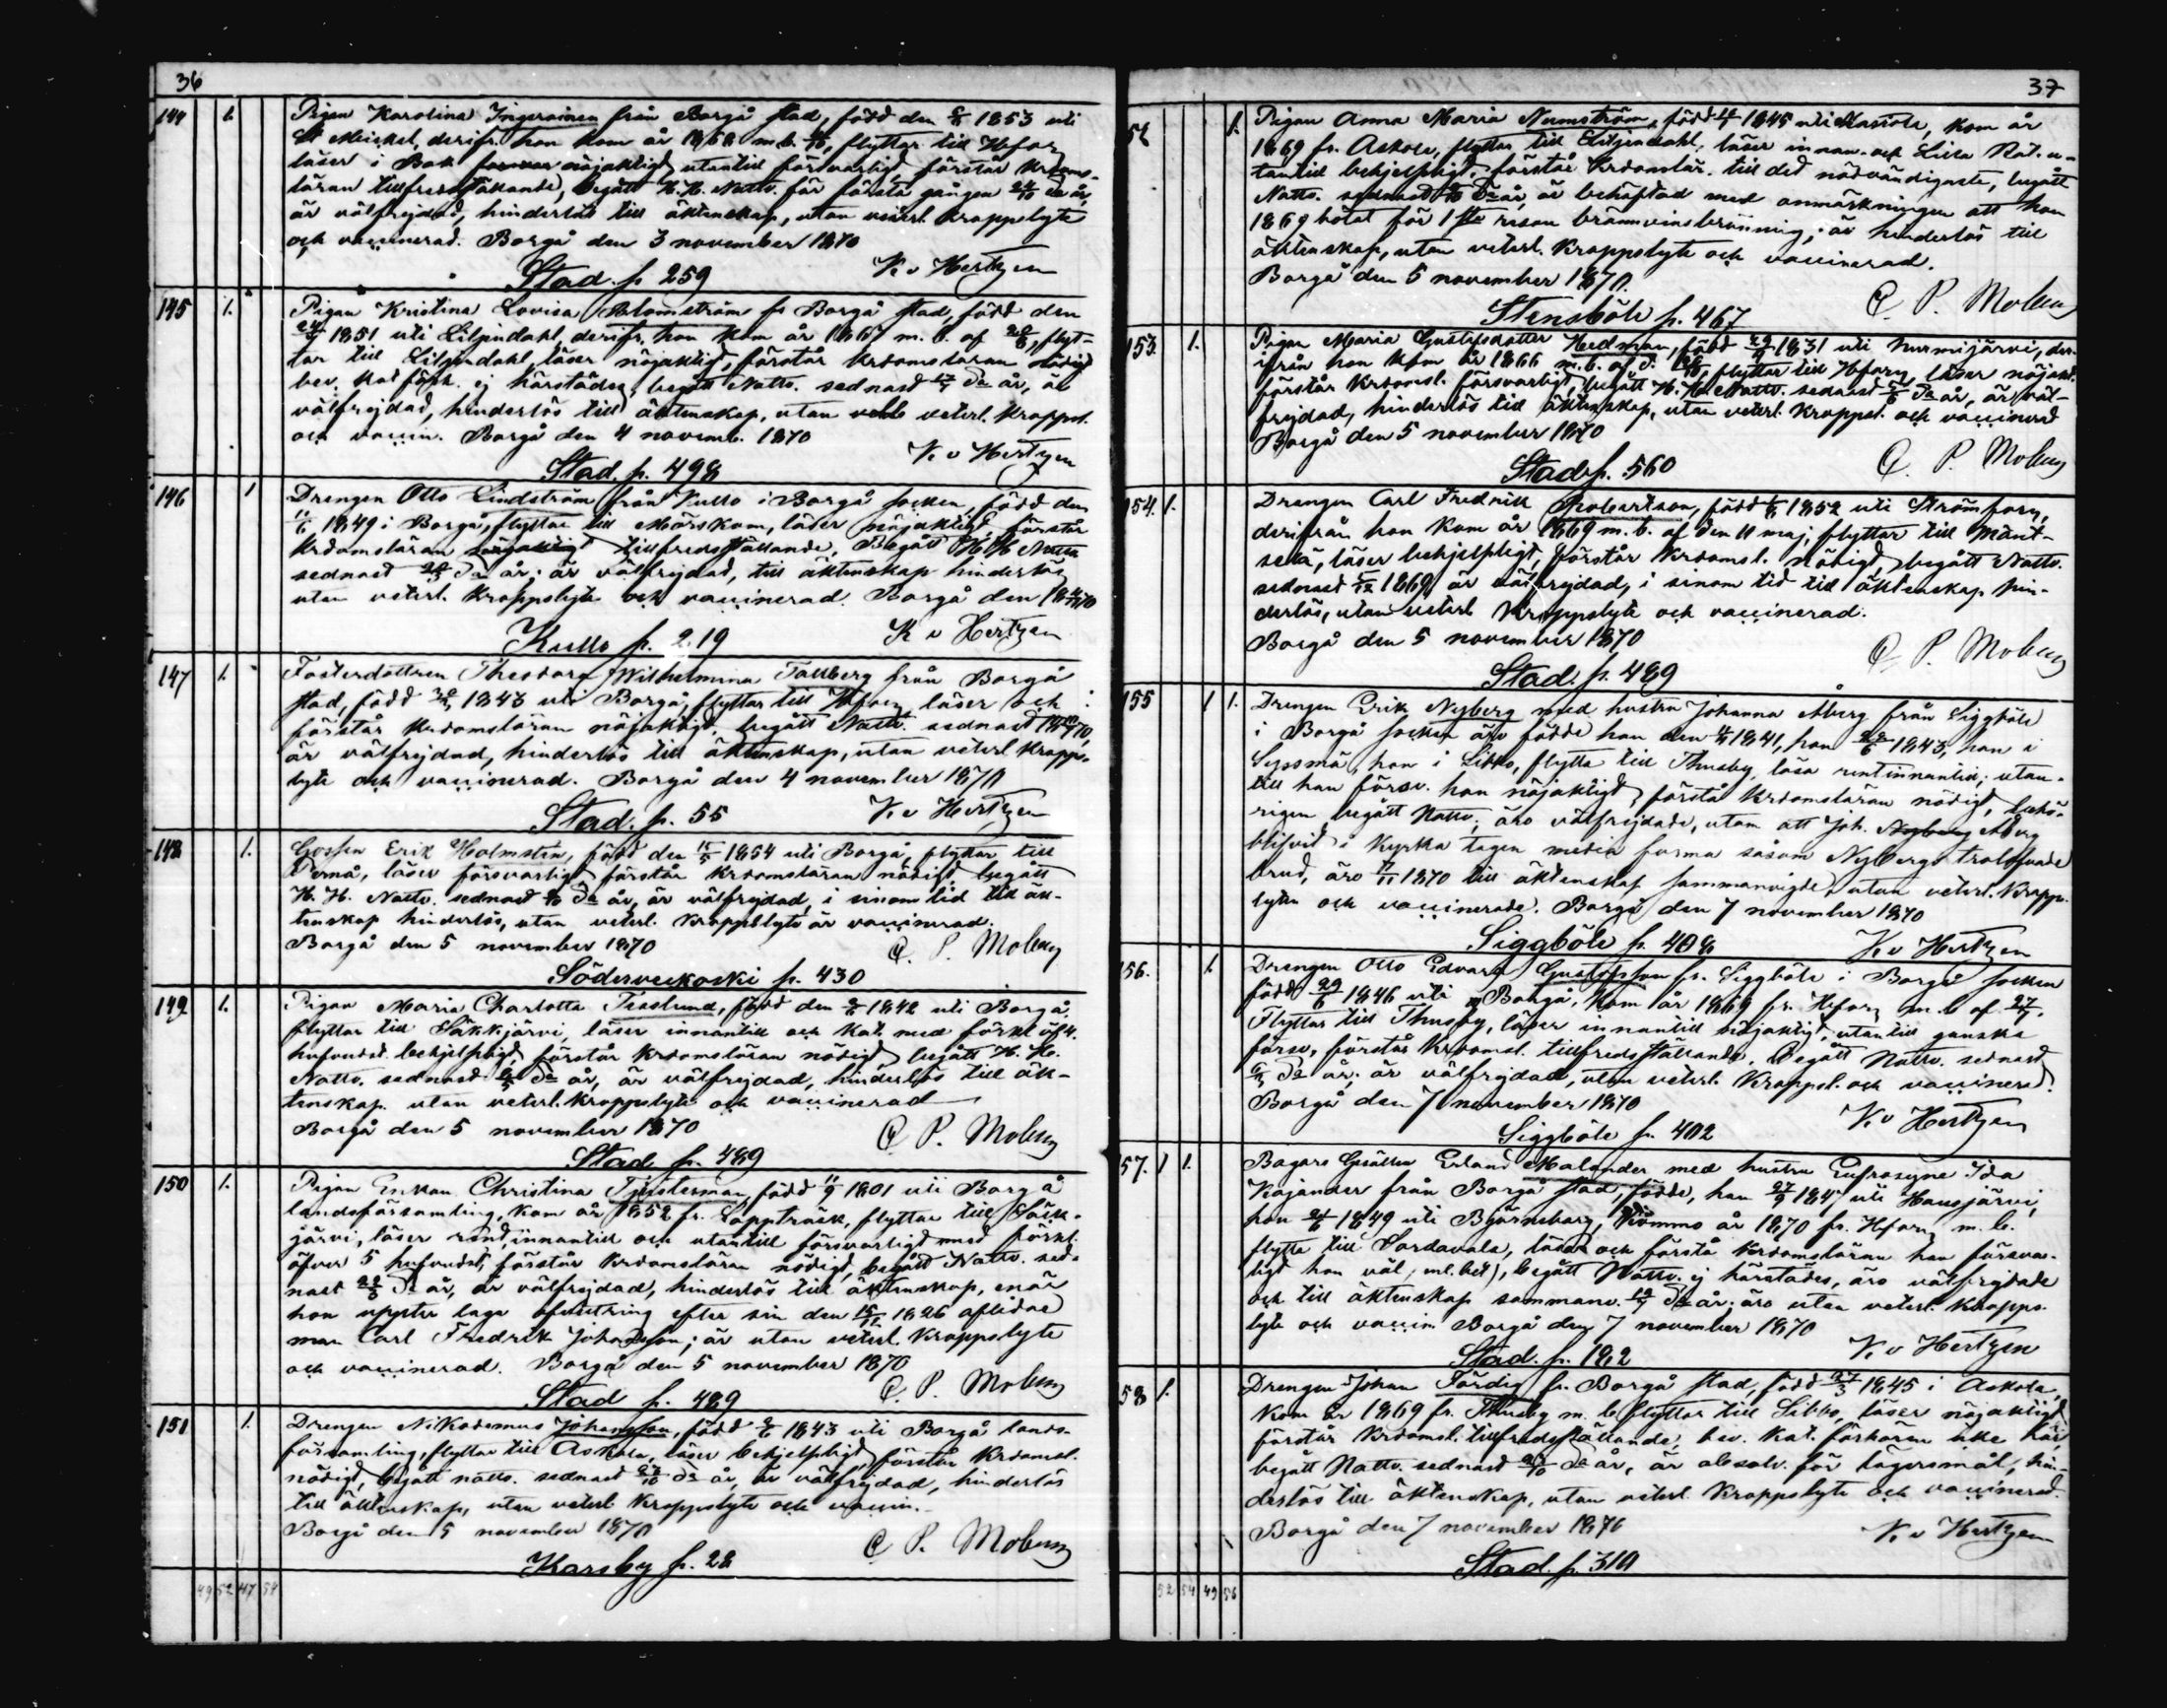 36
144 1. Pigan Karolina Ingeroinen från Borgå stad, född den 1853 uti
St Michel, derifr. hon kom år 1868 m. b. flyttar till Hfors
läser i Bok nöjaktigt utantill försvarligt, förstår Krdoms-
läran tillfredsställande, begått H. H. Nattv. för första gången 24/10 da år,
är välfrejdad, hinderlös till äktenskap, utan veterl. kroppslyte
och vaccinerad. Borgå den 3 november 1870
Stad. p. 259 K. v Hertzen
145 1. Pigan Kristina Lovisa Blomström fr Borgå stad, född den
1851 uti Liljendahl, derifr. hon kom år 1867 m. b. af flyt-
tar till Liljendahl, läser nöjaktigt, förstår krdomsläran nödigt
bev. kat förh. ej härstädes, begått Nattv. sednast da år, är
välfrejdad, hinderlös till äktenskap, utan veterl. kroppsl.
och vaccin. Borgå den 4 novemb. 1870
Stad. p. 498 K. v Hertzen
146 1 Drengen Otto Lindström från Kullo i Borgå socken, född den
11/6 1849 i Borgå, flyttar till Mörskom, läser nöjaktigt förstår
krdomsläran tillfredsställande. Begått H. H. Nattv
sednast da år; är välfrejdad, till äktenskap hinderlös
utan veterl. kroppslyte och vaccinerad. Borgå den 4/11 1870
Kullo p. 219 K v Hertzen
147 1. Fosterdottren Theodora Wilhelmina Tallberg från Borgå
stad, född 1843 uti Borgå, flyttar till Hfors, läser och
förstår krdomsläran nöjaktigt, begått Nattv. sednast
är välfrejdad, hinderlös till äktenskap, utan veterl kropps-
lyte och vaccinerad. Borgå den 4 november 1870
Stad. p. 55 K. v Hertzen
148 1. Gossen Erik Holmsten, född den 1854 uti Borgå, flyttar till
Pernå, läser försvarligt förstår krdomsläran nödigt, begått
H. H. Nattv. sednast da år, är välfrejdad, i sinom tid till äk-
tenskap hinderlös, utan veterl. kroppslyte är vaccinerad.
Borgå den 5 november 1870 C. P. Moberg
Söderveckoski p. 430
149 1. Pigan Maria Charlotta Tisslund, född den 1842 uti Borgå,
flyttar till Säkkjärvi, läser innantill och kat. med förkl öf. 4.
hufvudst. behjelpligt, förstår krdomsläran nödigt begått H. H.
Nattv. sednast da år, är välfrejdad, hinderlös till äk-
tenskap. utan veterl. kroppslyte och vaccinerad
Borgå den 5 november 1870 C P. Moberg
Stad p. 489
150 1. Pigan Enkan Christina Tjusterman, född 11/9 1801 uti Borgå
landsförsamling, kom år 1852 fr. Lappträsk, flyttar till Säk-
järvi, läser rent innantill och utantill försvarligt med förkl.
öfver 5 hufvudst, förstår krdomsläran nödigt, begått Nattv. sed-
nast da år, är välfrejdad, hinderlös till äktenskap, enär
hon uppter laga afwittring efter sin den 1826 aflidne
man Carl Fredrik Johansson; är utan veterl. kroppslyte
och vaccinerad. Borgå den 5 november 1870
Stad p. 489 C. P. Moberg
151 1. Drengen Nikodemus Johansson, född 1843 uti Borgå lands-
församling, flyttar till Askola, läser behjelpligt, förstår krdomsl.
nödigt, begått nattv. sednast da år, är välfrejdad, hinderlös
till äktenskap, utan veterl kroppslyte och vaccin.
Borgå den 5 november 1870 C P. Moberg
Karsby p. 28
49 52 47 54
37
52 1. Pigan Anna Maria Numström, född 1845 uti kom år
1869 fr. Askola, flyttar till Liljendahl, läser innan- och Lilla Kat. u-
tantill behjelpligt, förstår krdomslär. till det nödvändigaste, begått
Nattv. sednast da år, är behäftad med anmärkningen att hon
1869 bötat för 1sta resan bränvinsbränning, är hinderlös till
äktenskap, utan veterl. kroppslyte och vaccinerad.
Borgå den 5 november 1870.
Stensböle p. 467 C. P. Moberg
153. 1. Pigan Maria Gustafsdotter Hedman, född 1831 uti Nurmijärvi, der-
ifrån hon kom år 1866 m. b. af d. flyttar till Hfors, läser nöjakt.
förstår krdomsl. försvarligt, begått H. H. Nattv. sednast da år, är väl-
frejdad, hinderlös till äktenskap, utan veterl. kroppsl. och vaccinerad
Borgå den 5 november 1870
Stad p. 560 C. P. Moberg
154. 1. Drengen Carl Fredrik Robertson, född 1852 uti Strömfors,
derifrån han kom år 1869 m. b. af den 11 maj, flyttar till Mänt-
selä, läser behjelpligt, förstår krdomsl. nödigt, begått Nattv.
sednast 1869, är välfrejdad, i sinom tid till äktenskap hin-
derlös, utan veterl kroppslyte och vaccinerad.
Borgå den 5 november 1870
Stad. p. 489 C. P. Moberg
155 1 1. Drengen Erik Nyberg med hustru Johanna Åberg från Siggböle
i Borgå socken äro födde han den 1841, hon 1843, han i
Sysmä, hon i Sibbo, flytta till Thusby, läsa rent innantill; utan-
till han försv. hon nöjaktigt, förstå krdomsläran nödigt,
begått Nattv; äro välfrejdade, utom att Joh. Åberg
blifvit i kyrka tagen media forma såsom Nybergs trolofvade
brud, äro 1870 till äktenskap sammanvigde, utan veterl. kropps-
lyten och vaccinerade. Borgå den 7 november 1870
Siggböle p. 408 K. v Hertzen
56. 1. Drengen Otto Edvard Gustafsson fr. Siggböle i Borgå socken
född 29/6 1846 uti Borgå, kom år 1869 fr. Hfors m. b af 27/7.
Flyttar till Thusby, läser innantill nöjaktigt, utantill ganska
försv, förstår krdomsl. tillfredsställande. Begått Nattv. sednast
da år; är välfrejdad, utan veterl. kroppsl. och vaccinerad.
Borgå den 7 november 1870
Siggböle p. 402 K. v Hertzen
57. 1 1. Bagare Gesällen Erland Malander med hustru Eufrosyne Ida
Kajander från Borgå stad, födde, han 27/9 184 uti Hausjärvi,
hon 1849 uti Björneborg, komma år 1870 fr. Hfors m. b.
flytta till Sordavala, läsa och förstå krdomsläran han försvar-
ligt hon väl, begått Nattv. ej härstädes, äro välfrejdade
och till äktenskap sammanv. da år; äro utan veterl. kropps-
lyte och vaccin Borgå den 7 november 1870
Stad. p. 182 K. v Hertzen
58 1. Drengen Johan Färdig fr. Borgå stad, född 27/3 1845 i Askola,
kom år 1869 fr. Thusby m. b. flyttar till Sibbo, läser nöjaktigt
förstår krdomsl. tillfredsställande, bev. kat. förhören icke här,
begått Nattv. sednast da år, är absolv. för lägersmål, hin-
derlös till äktenskap, utan veterl. kroppslyte och vaccinerad.
Borgå den 7 november 1870 K. v Hertzen
Stad. p. 310
52 54 49 56